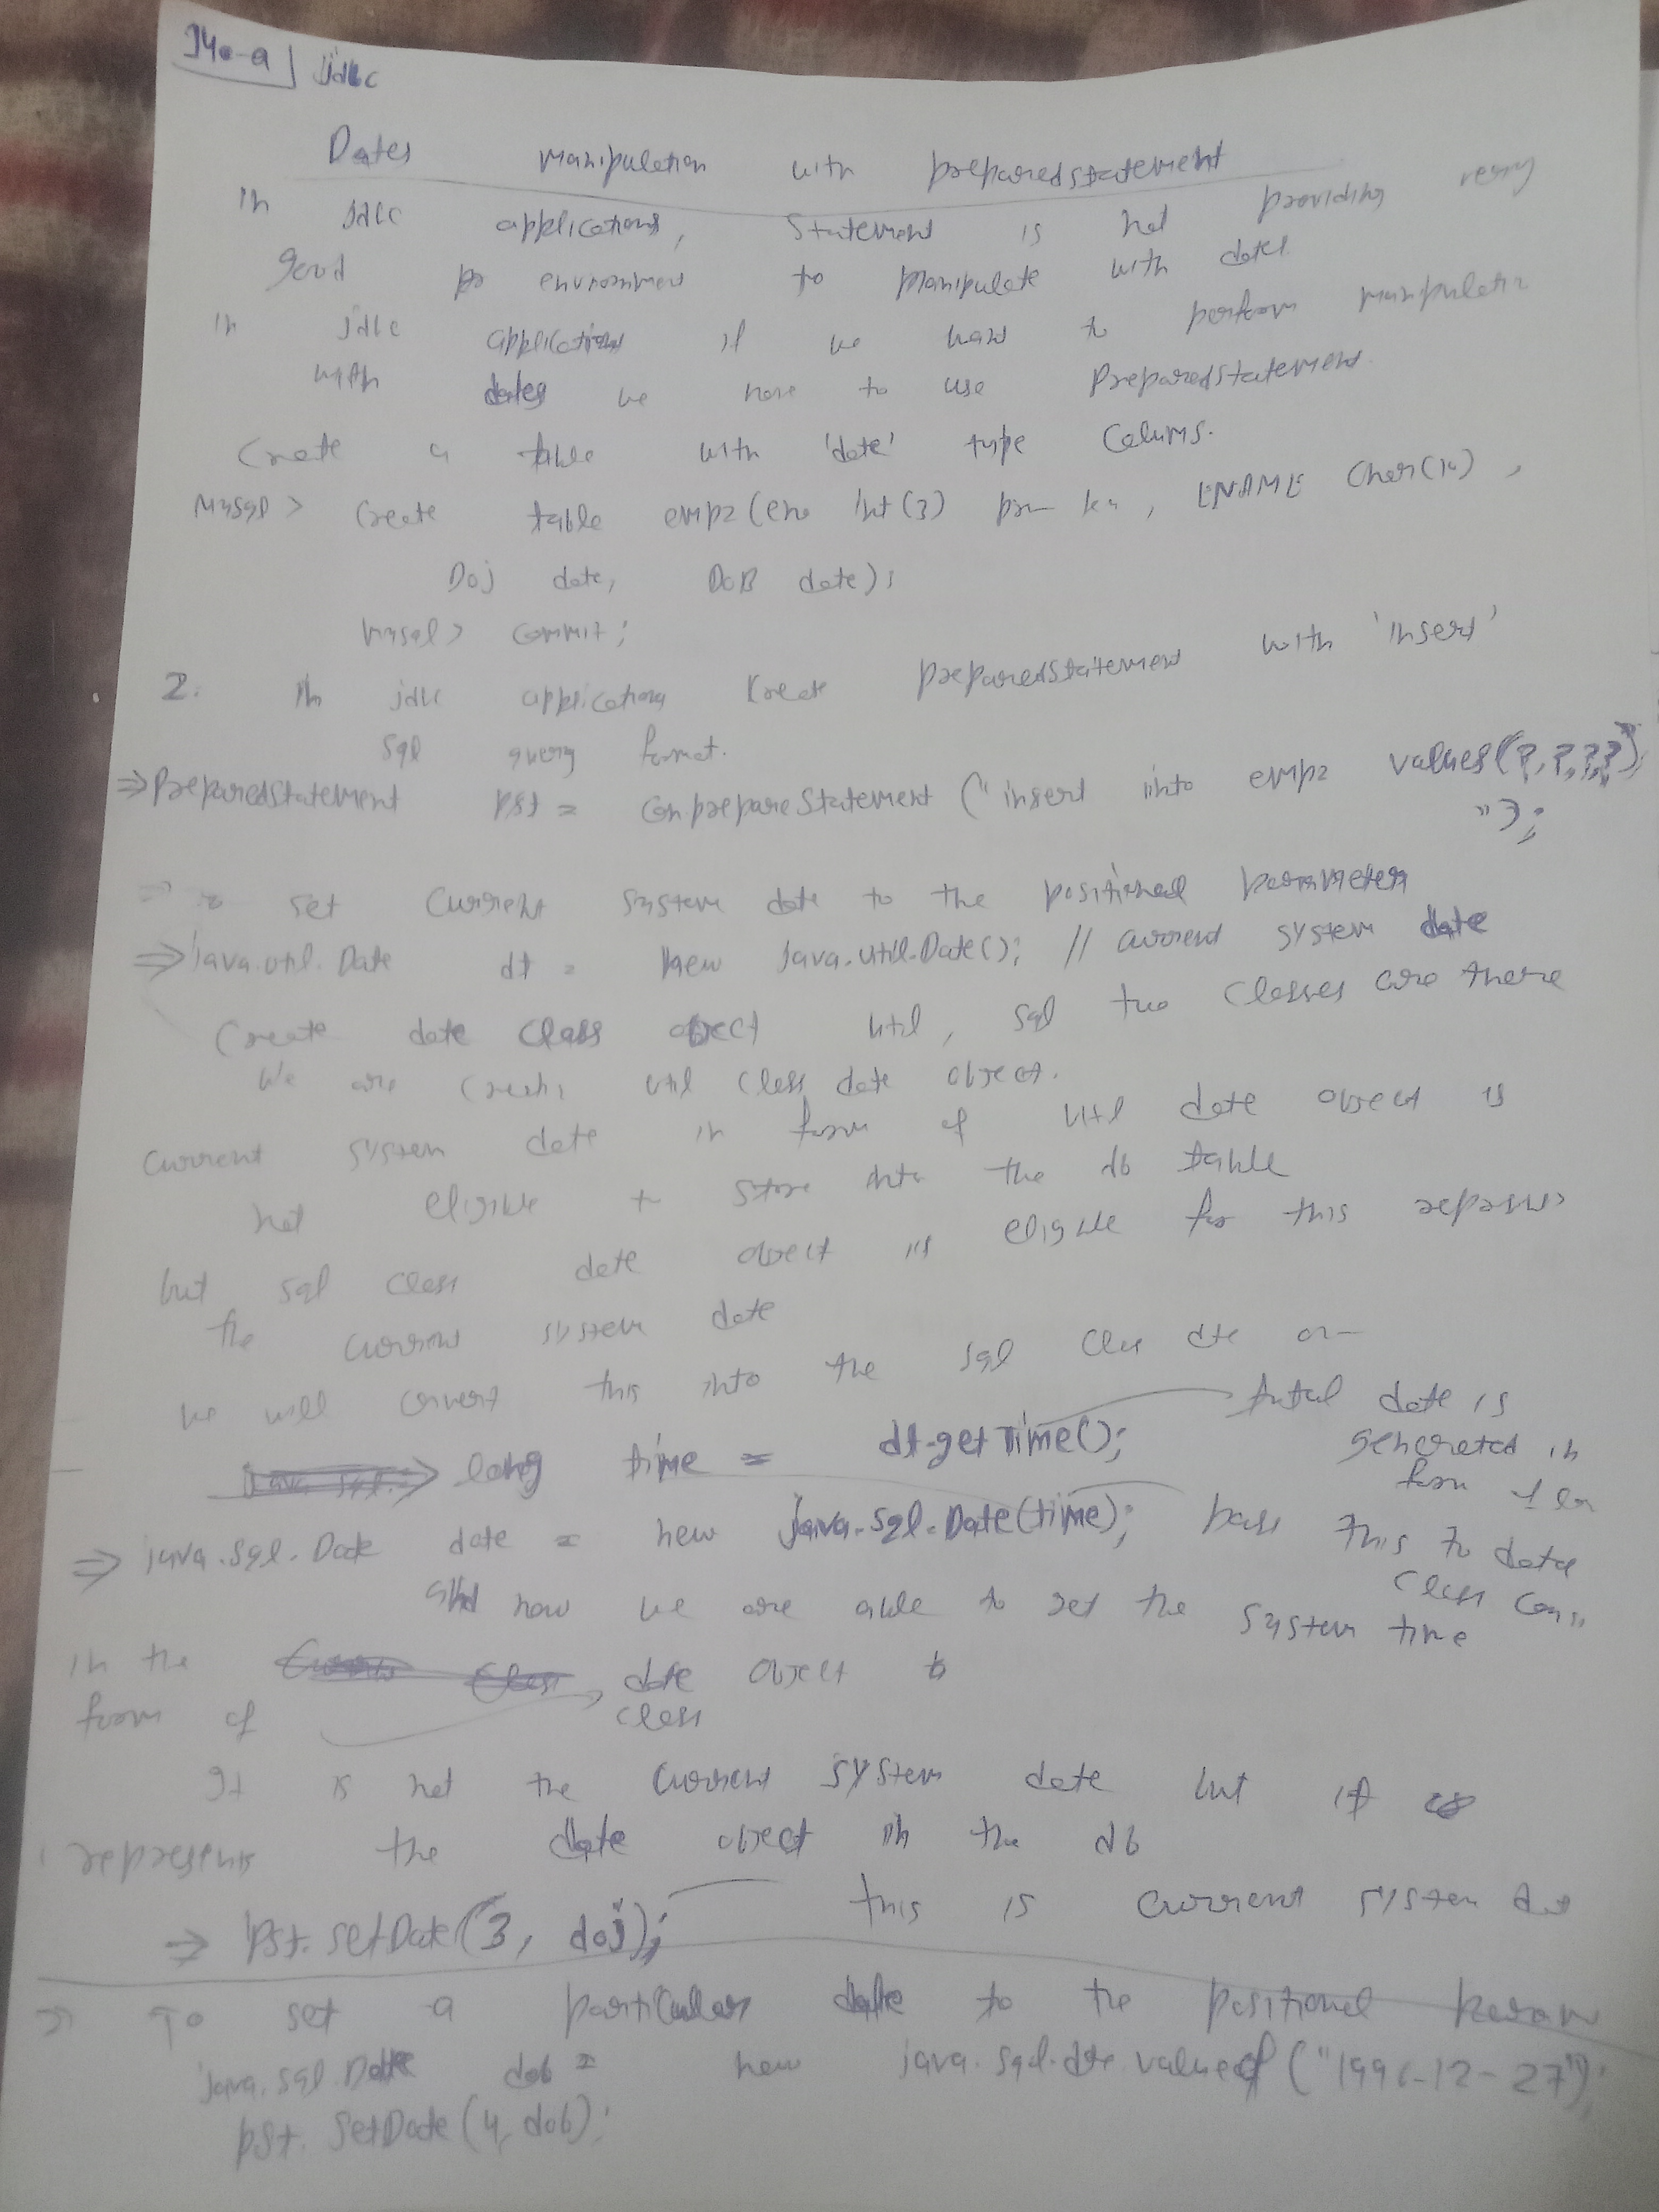 J40-a jdbc
Dates manipulation with preparedstatement
In jdbc applications, Statement is not providing very
good environment to manipulate with dates.
in jdbc applications if we want to perform manipulatn
with dates we have to use PreparedStatement.
Create a table with 'date' type Colums.
Mysql> Create table emp2(eno int(3) , ENAME Char(10),
DOJ date, DOB date);
Mysql> commit;
2. In jdbc applications create preparedStatement with 'insert'
sql query format.
=> PreparedStatement pst = Con prepareStatement ("insert into emp2 values(?,?,?,?)
");
=> set current system date to the positional parameter
=> java.util.Date dt = new java.util.Date(); // current system date
Create date class object util, sql two classes are there
We are util class date object.
Current system date in form of util date object is
not eligible to store into the db table
but sql class date object is eligible for this
the current system date
we will convert this into the sql
long time = dt.getTime(); date is
generated in
form of
=> java.sql.Date date = new java.sql.Date(time); pass this to date
class
and now we are able to set the system time
in the date object
form of class
It is not the current system date but it
represents the date object in the db
=> Pst.setDate(3, doj); this is current system
=> To set a particular date to the positional param
java.sql.Date dob = new java.sql.dte.valueof("1996-12-27");
pst. setDate(4, dob);